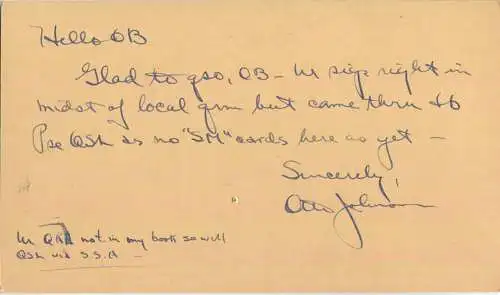 Hello OB
Glad to qso, OB - Ur sigs right in
midst of local qrm but came thru
Pse QSL as no "SM" cards here as yet -
Sincerely,
Otto Johnson
Ur QRA not in my book so will
QSL via S.S.A -